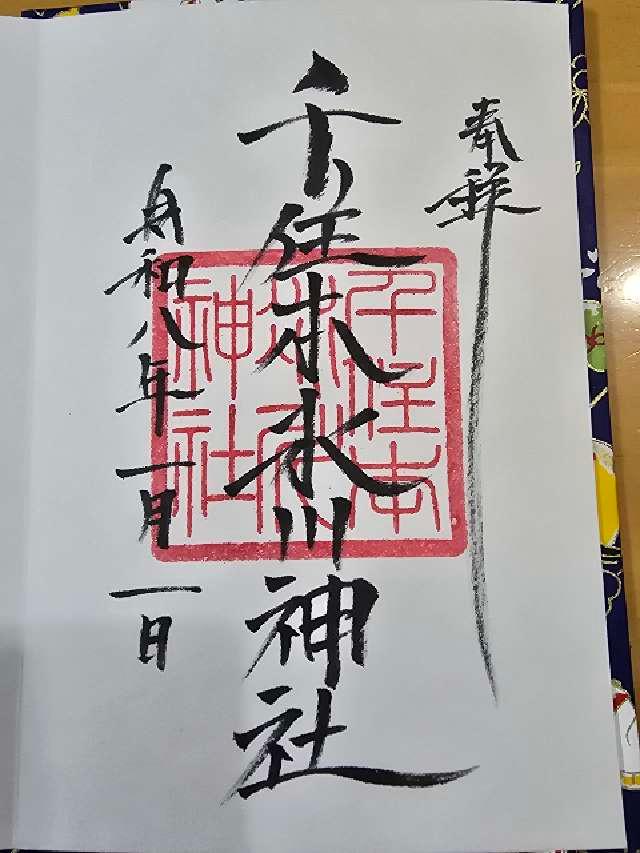 奉拝
千住本氷川神社
令和八年一月一日
千住本
氷川
神社